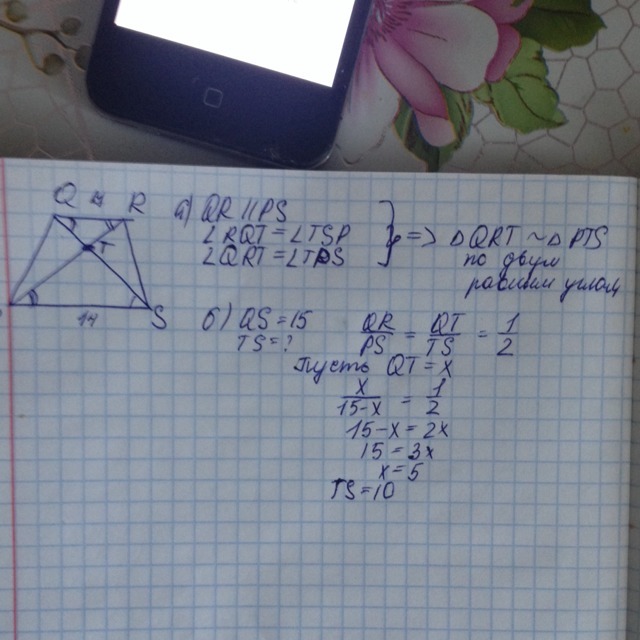 Q R
T
S
14
а) QR || PS
∠RQT = ∠TSP
∠QRT = ∠TPS
} => △QRT ~ △PTS
по двум
равным углам
б) QS = 15
TS = ?
QR/PS = QT/TS = 1/2
Пусть QT = x
x/15-x = 1/2
15-x = 2x
15 = 3x
x = 5
TS = 10